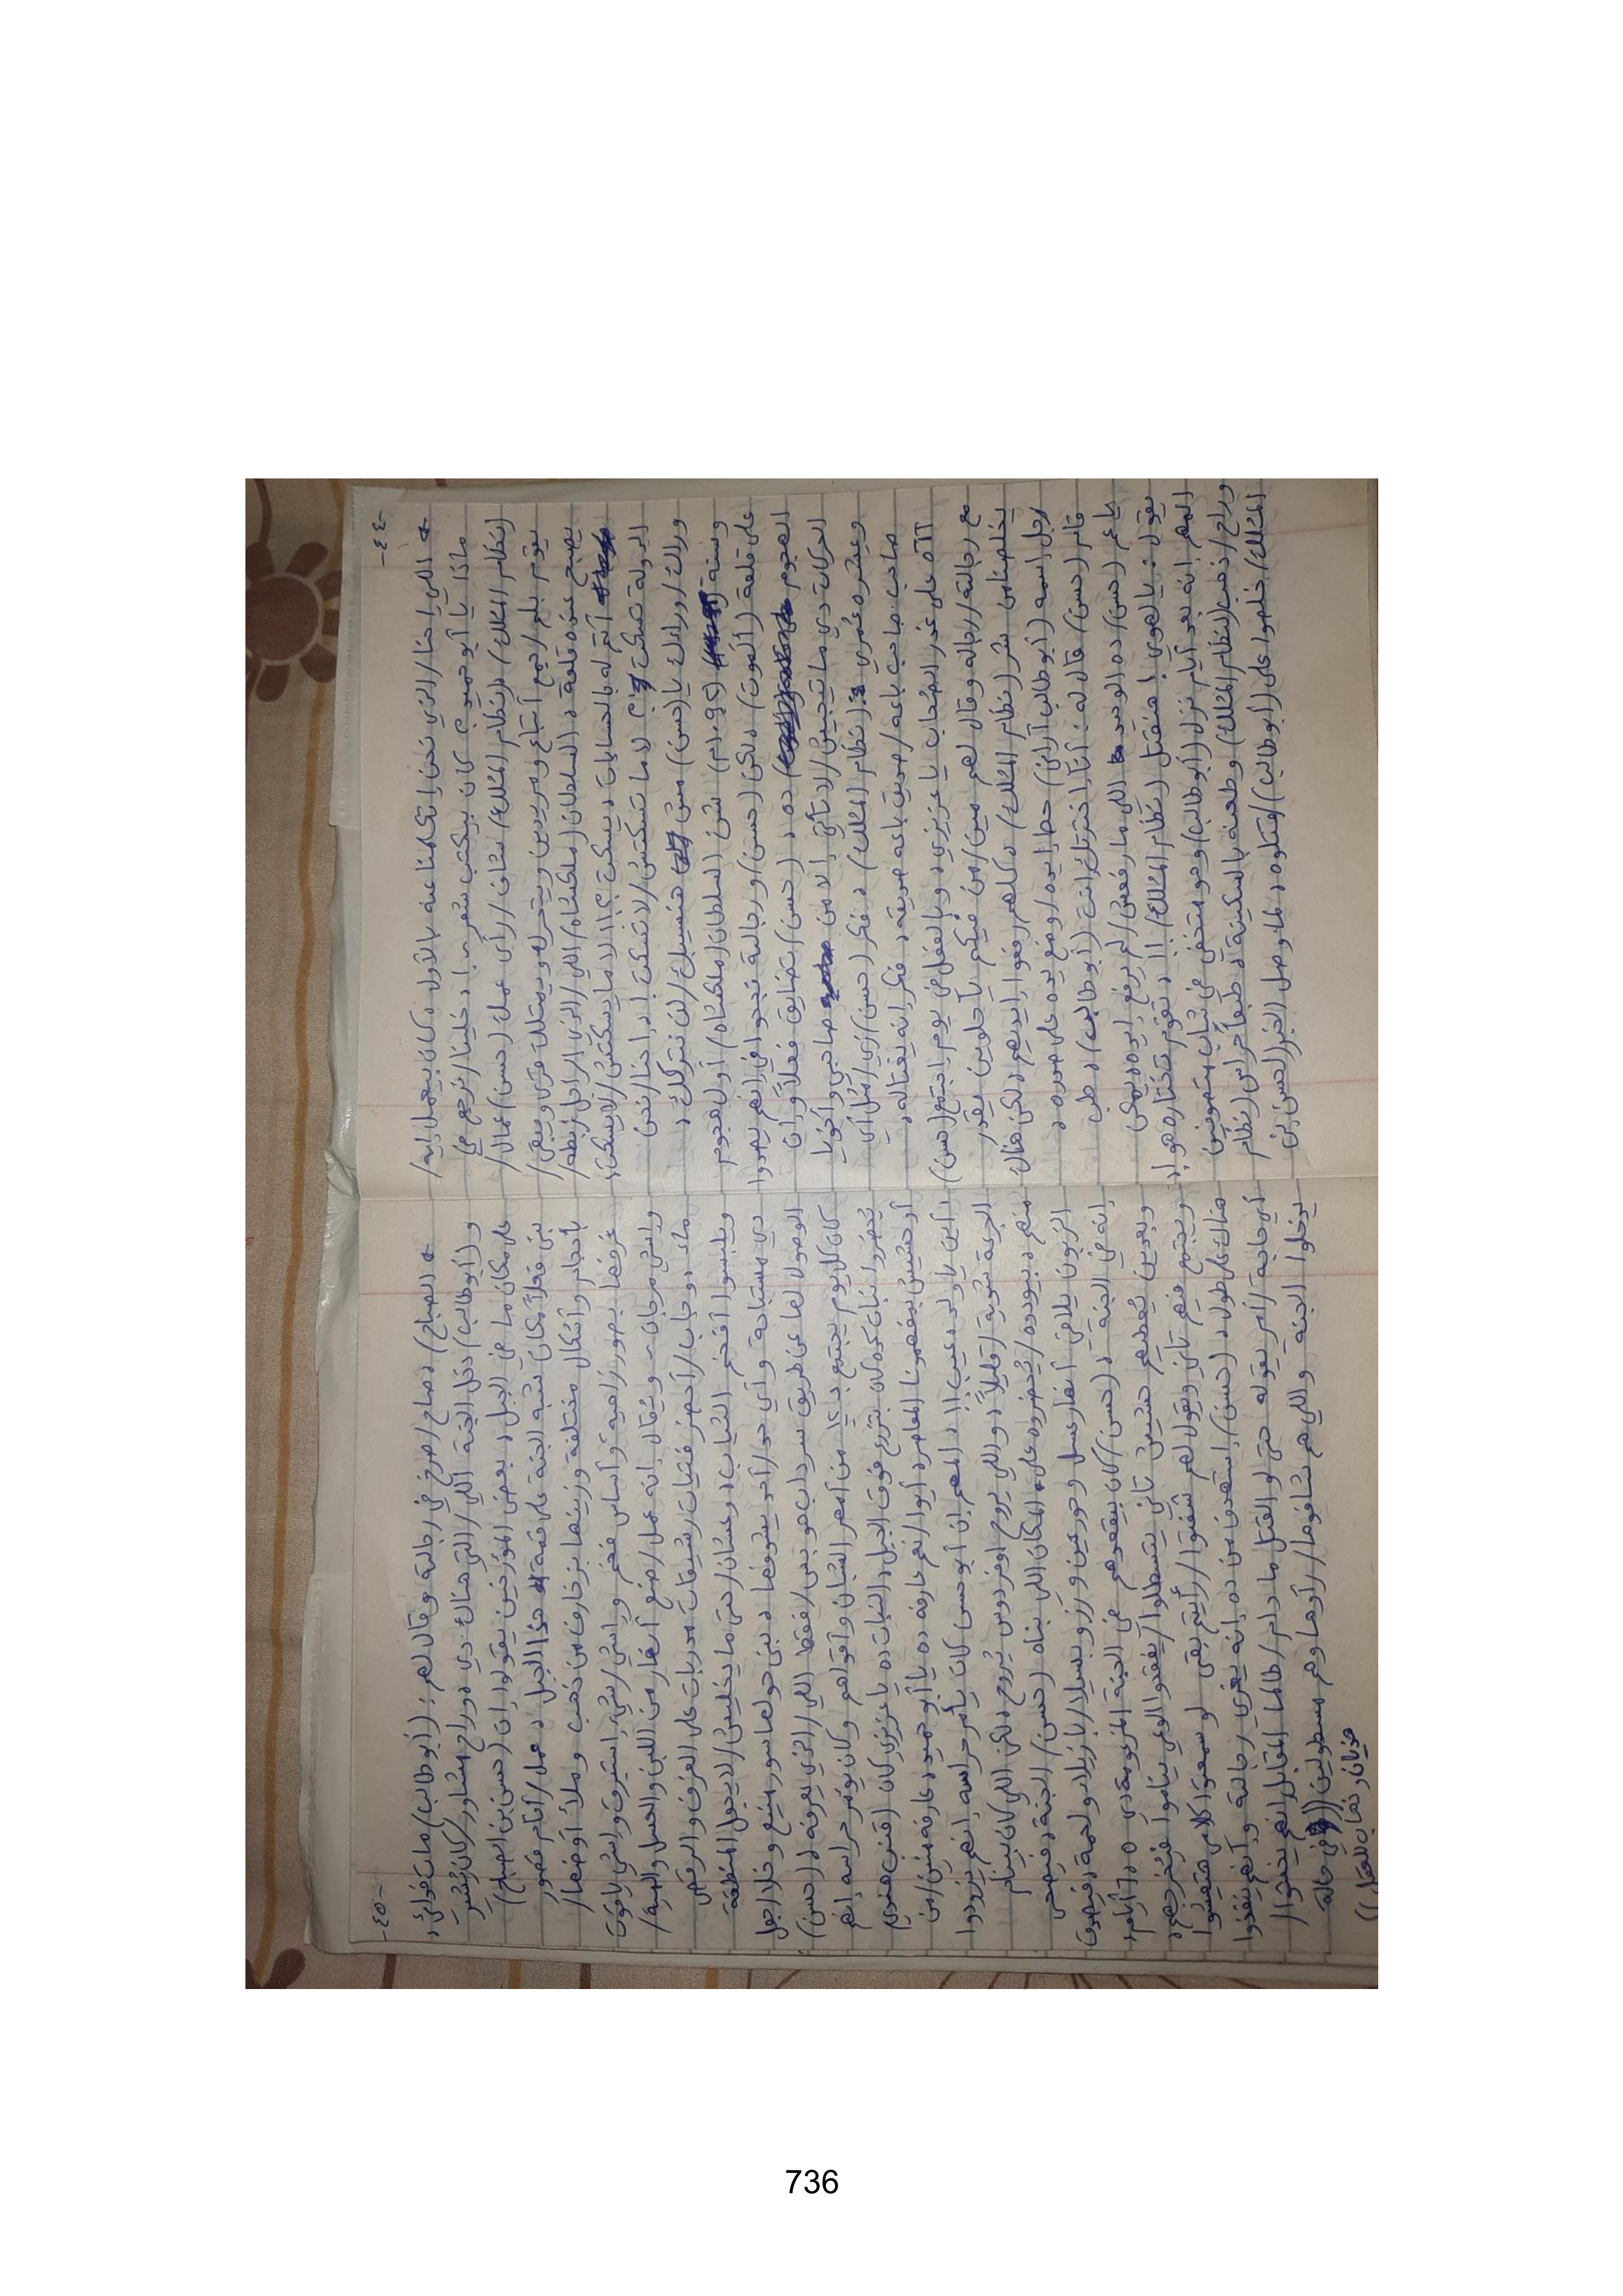 -٤٤-
* اللي احنا/الذي نحن إتكلمنا عنه بالأول، كان بيعمل إيه/
ماذا يا أبو حميد؟ كان بيكتب شعر؟! دخلينا/نرجع في
(نظام الملك)، (نظام الملك) شاف/رأى عمك (حسن) عمال/
يقوم بلم/جمع أتباع ومريدين وبيتحرك وبيمتلك قرى وبقى/
يصبح عنده قلعة، السلطان (ملكشاه) اللي/الذي الراجل ربطه/
أنتم له بالحسابات، يسكت؟!! لا مايسكتش/لايسكت،
الدولة تسكت؟ لا ما تسكتش/لاتسكت!، إحنا/نحن
وراك/وراءك يا (حسن) مش هنسيبك/لن نتركك،
وسنة (١٠٩٢م) شن السلطان (ملكشاه) أول هجوم
على قلعة (ألموت)، لكن (حسن) ورجالته نجحوا في إنهم يصدوا
الهجوم ده، (حسن) إتضايق فعلاً وإن
الحركات دي ما تجيش/لاتأتي إلا من صاحبي وأخويا
وعيشرة عمري (نظام الملك)، فكر (حسن) زي/مثل أي
صاحب صاحب باعه/صديق باعه صديقه، فكر إنه يغتاله،
آآآه على غدر الصحاب يا عزيزي، وبالفعل في يوم إجتمع (حسن)
مع رجالته/رجاله وقال لهم مين/من فيكم يا حلوين يقدر
يخلصنا من شر (نظام الملك)، كلهم رفعوا إيديهم، لكن هناك
رجل إسمه (أبو طالب أراني) حط إيده/وضع يده على صدره،
قام (حسن) قال له: أنا إخترتك إنت (أبو طالب)، طب
يا عم (حسن)، ده الوحيد اللي مارفعش/لم يرفع إيده، يمكن
يقول: يالهوي! هنقتل (نظام الملك)!!، تقوم تختاره هو!،
المهم إنه بعد أيام نزل (أبو طالب) وهو متخفي في ثياب متصوفين
وراح/ذهب (لنظام الملك) وطعنه بالسكينة، طبعاً حراس (نظام
الملك) خلصوا على (أبو طالب)/قتلوه، لما وصل الخبر (لحسن بن
-٤٥-
* الصباح)، صاح/صرخ في رجالته وقال لهم: (أبو طالب) مات فدائي،
و(أبو طالب) دخل الجنة اللي/التي هناك دي، وراح مشاور/كان يُشير
على مكان ما في الجبل، بعض المؤرخين يقولوا إن (حسن بن الصباح)
بنى فعلاً مكان شبه الجنة على قمة هذا الجبل، عمل/أقام قصور
بأحجام وأشكال مختلفة وزينها بزخارف من ذهب وملأ أوضها/
غرفها بصور زاهية وأساس فخم وإشي/شيء إستبرق وإشي ياقوت
وإشي مرجان، ويُقال إنه عمل/صنع أنهار من اللبن والعسل والمية/
ماء، وجاب/أحضر فتيات رشيقات مدربات على العزف والرقص
ويلبسوا أفخم الثياب، وعشان/حتى ما يخليش/لا يجعل المنطقة
دي مستباحة وأي حد/أحد يشوفها، بنى حولها سور منيع وخلا/جعل
الوصول لها عن طريق سرداب هو بس/فقط اللي/الذي يعرفه، (حسن)
كان كل يوم يجتمع بـ ١٢ من أمهر الشبان وأقواهم وكان يؤمر حراسه إنهم
يُحضروا نبات كده كان بتزرع فوق الجبل، النبات ده يا عزيزي كان (قنب هندي)
أو حشيش بمفهومنا المعاصر، أيوا/نعم عارفه ده يا أبو حميد، عارفه منين/من
أين يا ولد، عيب!!، المهم إن أبو حسن كان يأمر حراسه إنهم يزودوا
الجرعة شوية/قليلاً، واللي يروح الفردوس يُروح، لكن اللي كان بينام
منهم، بيودوه/يُحضروه على المكان اللي بناه (حسن)/الجنة، فيصحى
الزبون يلاقي أنهار عسل وحور عين ورز وبسلة/بازيلاء ولحمة، فيصدق
إنه في الجنة، (حسن) كان بيقعدهم في الجنة المزعومة دي ٥،٦ أيام،
وبعدين يُعطيهم حشيش تاني يتسطلوا/يفقدوا الوعي يناموا، فيُخرجهم،
ويجتمع فيهم تاني ويقول لهم شفتوا/رأيتم بقى لو سمعتوا كلامي هتعيشوا
هناك على طول، (حسن) إستهدف من ده إنه يغري رجالته وإنهم ينفذوا
أي حاجة/أمر يقوله حتى لو القتل ما دام/طالما المقابل إنهم يخشوا/
يدخلوا الجنة واللي هم شافوها/رأوها وهم مسطولين ((في حالة
هذيان وغياب للعقل))
736